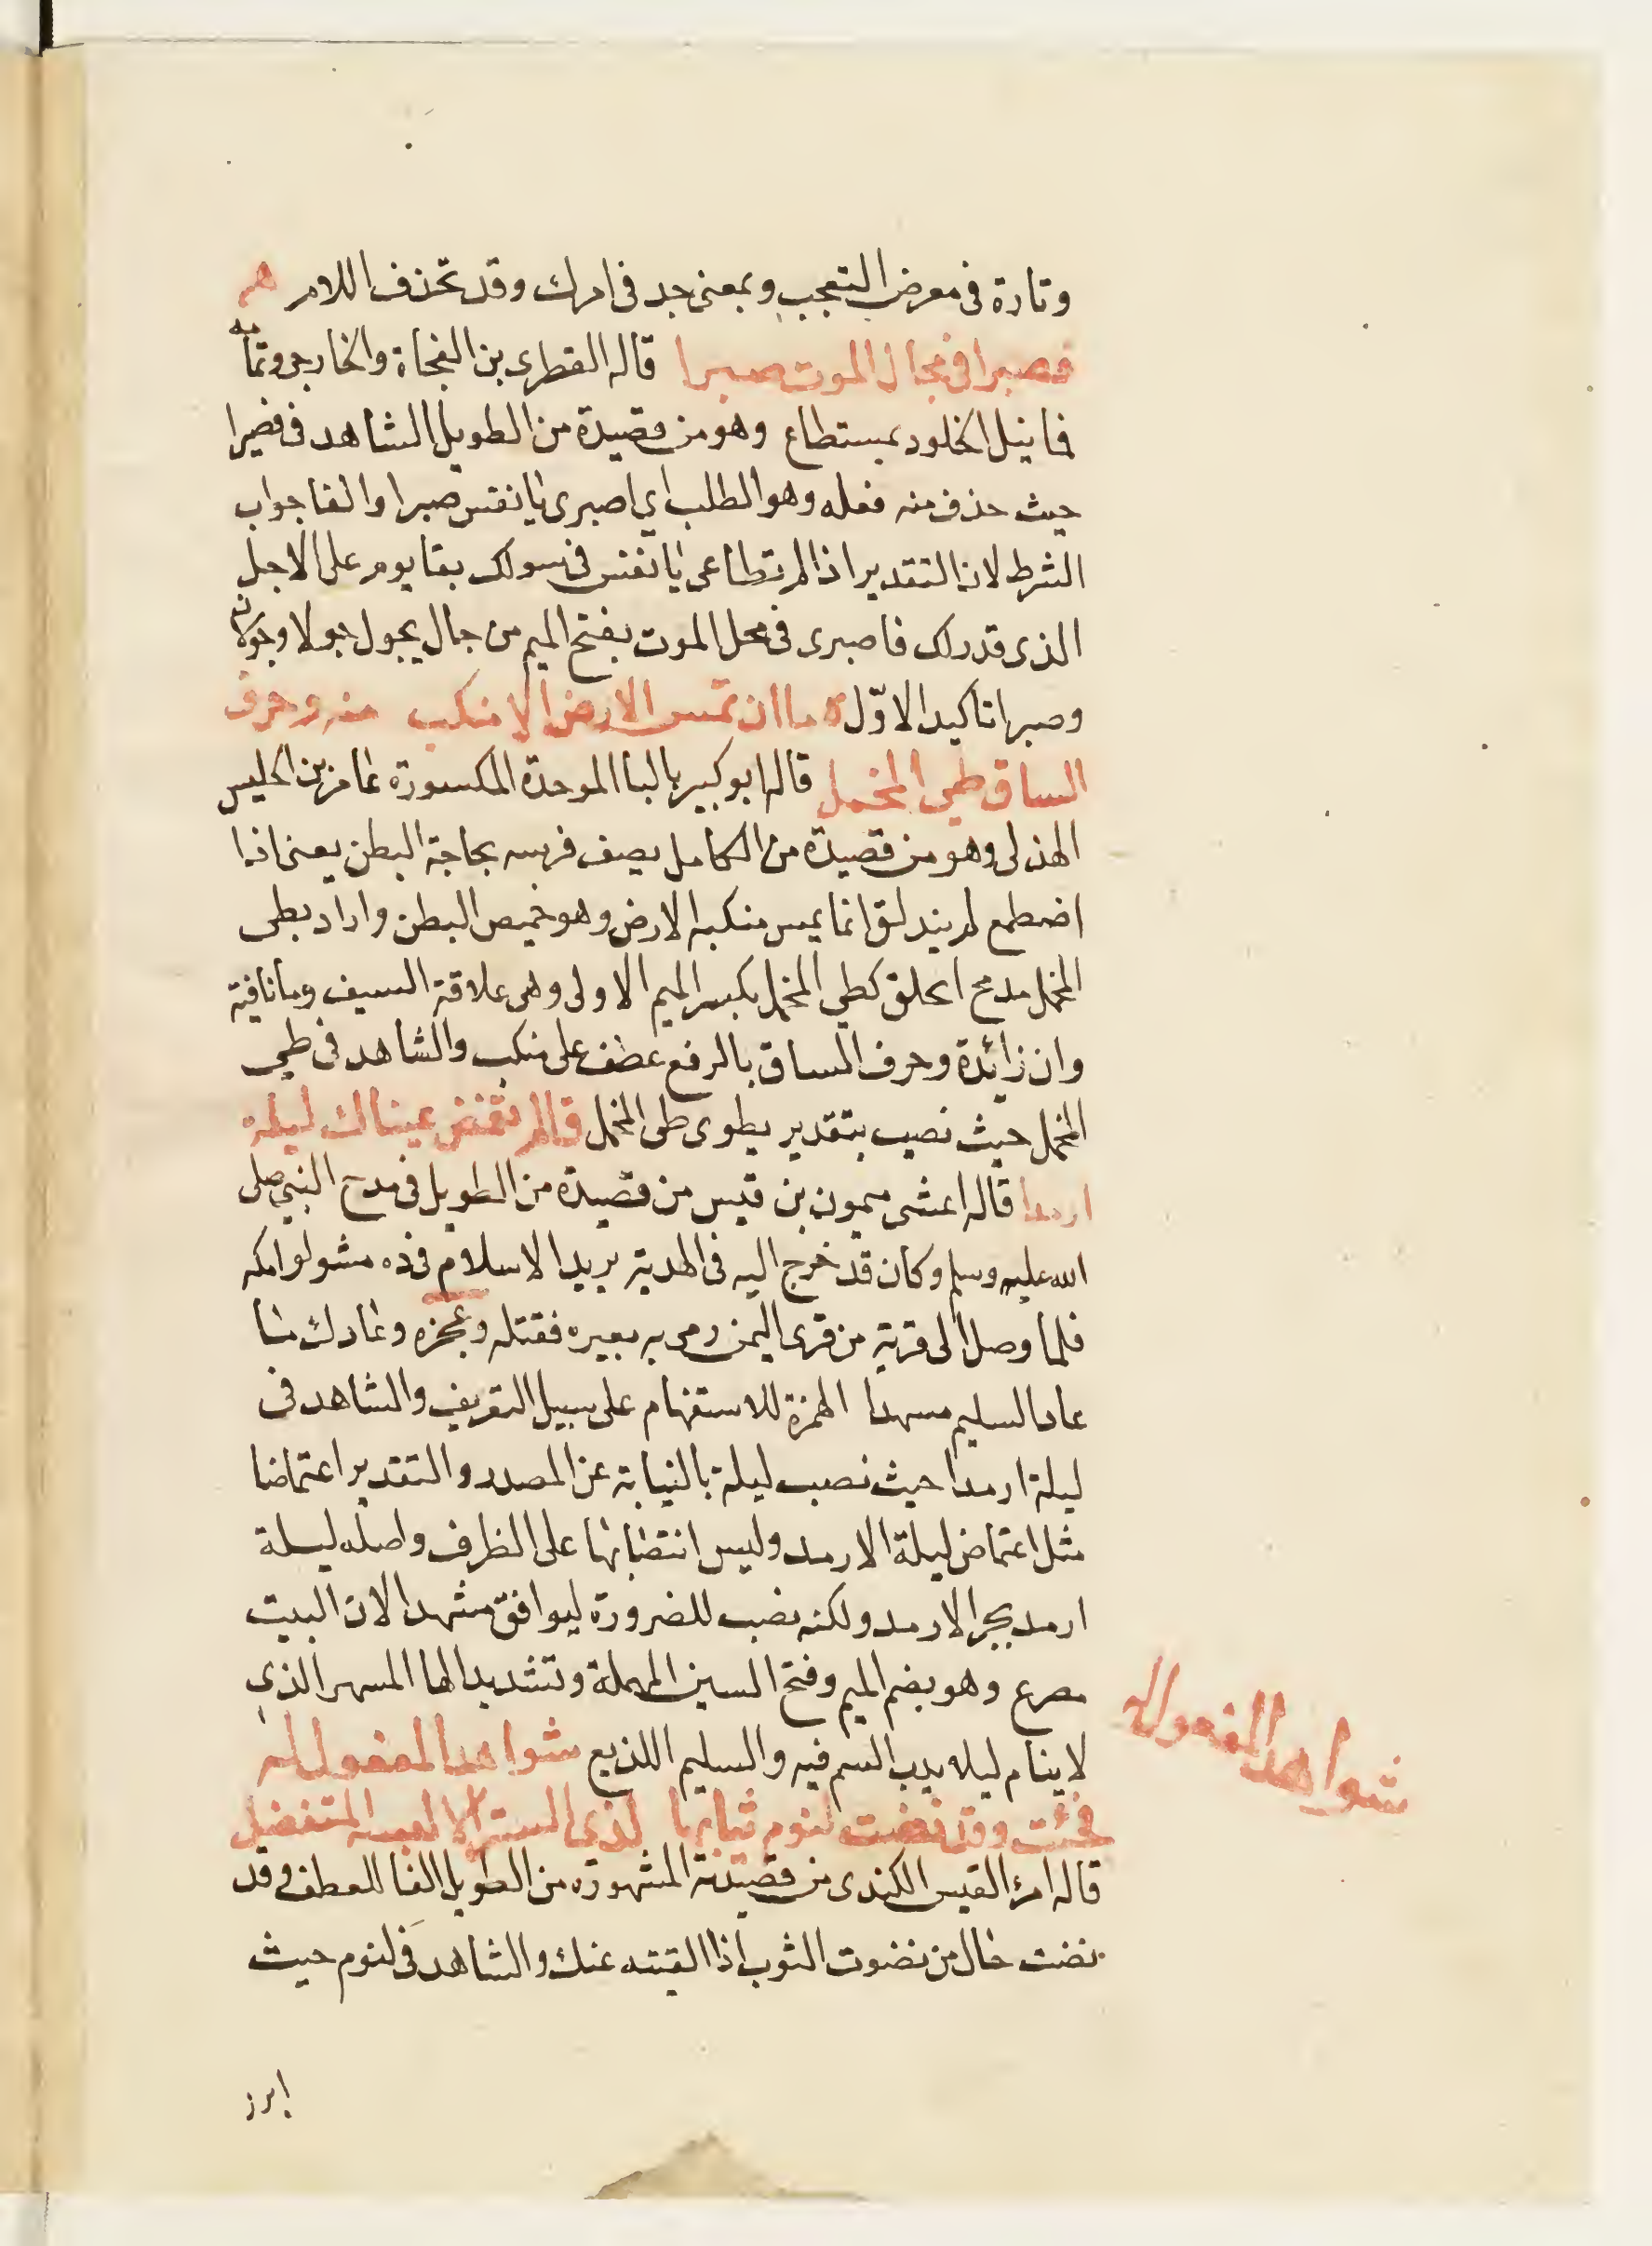 وتارة فى معرض التعجب وبمعنى جد فى امرك وقد تحذف اللام هم
فصبرا فى مجال الموت صبرا قاله القطرى بن الفجاة والخارجى وتمامه
فما نيل الخلود بمستطاع وهو من قصيدة من الطويل الشاهد فى فصبرا
حيث حذف منه فعله وهو الطلب اي اصبرى يا نفس صبرا والفا جواب
الشرط لان التقدير اذا لم تطاعى يا نفس فى سولك بقا يوم على الاجل
الذى قدر لك فاصبرى فى محل الموت بفتح الميم من جال يجول جولا وجولانا
وصبرا تاكيد الاوّل ه ما ان تمس الارض الا منكب منه وحرف
الساق طي المحمل قاله ابو كبير بالبا الموحدة المكسورة عامر بن الحليس
الهذلى وهو من قصيدة من الكامل يصف فرسه بحاجة البطن يعنى اذا
اضطمع لم يندلق انما يمس منكبه الارض وهو خميص البطن واراد بطى
المحمل مدمج الخلق كطي المحمل بكسر الميم الاولى وهى علاقة السيف وما نافية
وان زائدة وحرف الساق بالرفع عطف على منكب والشاهد فى طي
المحمل حيث نصب بتقدير يطوى طى المحمل ق الم تغتمض عيناك ليلة
ارمدا قاله اعشى ميمون بن قيس من قصيدة من الطويل فى مدح النبي صلى
الله عليه وسلم وكان قد خرج اليه فى الهدية يريد الاسلام فرده مشولوا مكه
فلما وصل الى قرية من قرى اليمن رمى به بعيره فقتله وعجزه وعادك ما
عاد السليم مسهدا الهمزة للاستفهام على سبيل التقريف والشاهد فى
ليلة ارمدا حيث نصب ليلة بالنيابة عن المصدر والتقدير اغتماضا
مثل اغتماض ليلة الارمد وليس انتصابها على الظرف واصله ليلة
ارمد بجر الارمد ولكنه نصب للضرورة ليوافق مشهدا لان البيت
مصرع وهو بضم الميم وفتح السين المهملة وتشديد الها المسهر الذي
لا ينام ليله يدب السم فيه والسليم اللذيع شواهد المفعول له
شواهد المفعول له
فجئت وقد نضت لنوم ثيابها لدى الستر الا لبسة المتفضل
قاله امرؤ القيس الكندى من قصيدته المشهورة من الطويل الفا للعطف وقد
نضت حال من نضوت الثوب اذا القيته عنك والشاهد فى لنوم حيث
ابرز